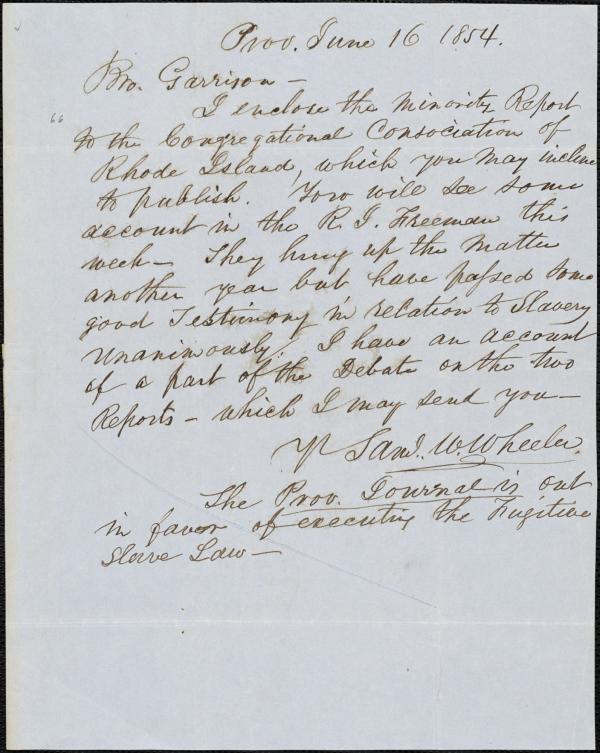 Prov. June 16 1854.
Bro. Garrison —
I enclose the Minority Report
to the Congregational Consociation of
Rhode Island, which you may incline
to publish. You will see some
account in the R. I. Freeman this
week — They hung up the matter
another year but have passed some
good Testimony in relation to Slavery
unanimously. I have an account
of a part of the Debate on the two
Reports — which I may send you —
Yr Saml. W. Wheeler.
The Prov. Journal is out
in favor of executing the Fugitive
Slave Law —